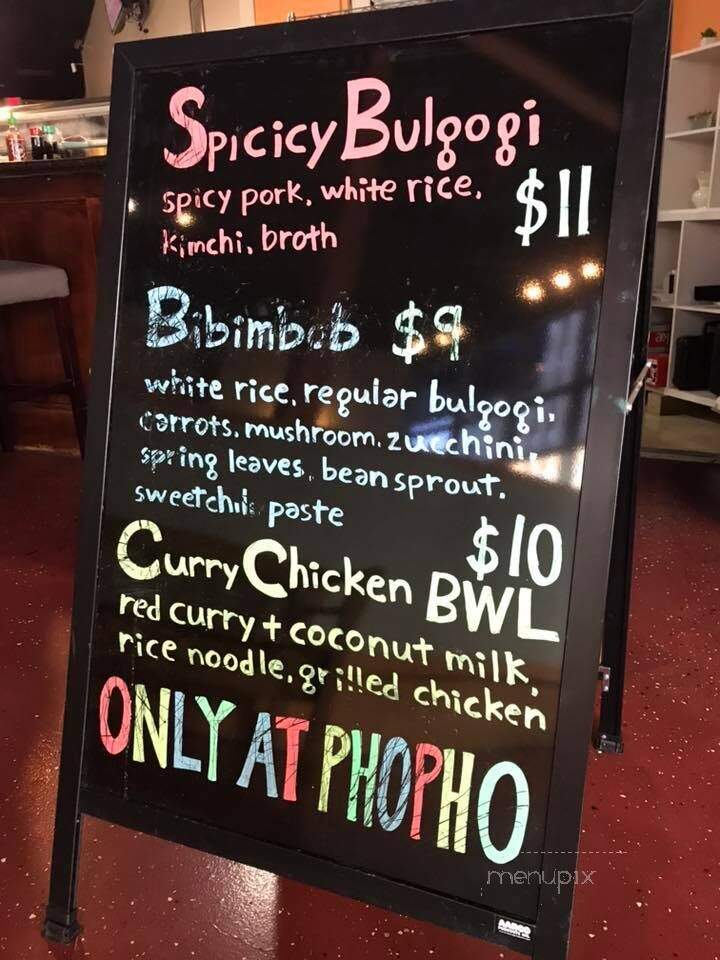 SPICICY BULGOGI
spicy pork, white rice, $11
kimchi, broth
Bibimbab $9
white rice, regular bulgogi,
carrots, mushroom, zucchini,
spring leaves, bean sprout,
sweetchili paste
$10
CURRY CHICKEN BWL
red curry + coconut milk,
rice noodle, grilled chicken
ONLY AT PHOPHO
menupix
AARCO